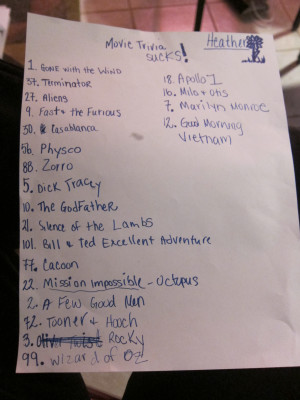 Movie Trivia
sucks!
Heather
1. Gone with the Wind
57. Terminator
27. Aliens
9. Fast & the Furious
30. Casablanca
56. Physco
88. Zorro
5. Dick Tracey
10. The Godfather
21. Silence of the Lambs
101. Bill & Ted Excellent Adventure
77. Cacoon
22. Mission Impossible - Octopus
2. A Few Good Men
72. Tooner & Hooch
3. Oliver Twist Rocky
99. Wizard of Oz
18. Apollo 1
16. Milo & Otis
7. Marilyn Monroe
12. Good Morning
Vietnam